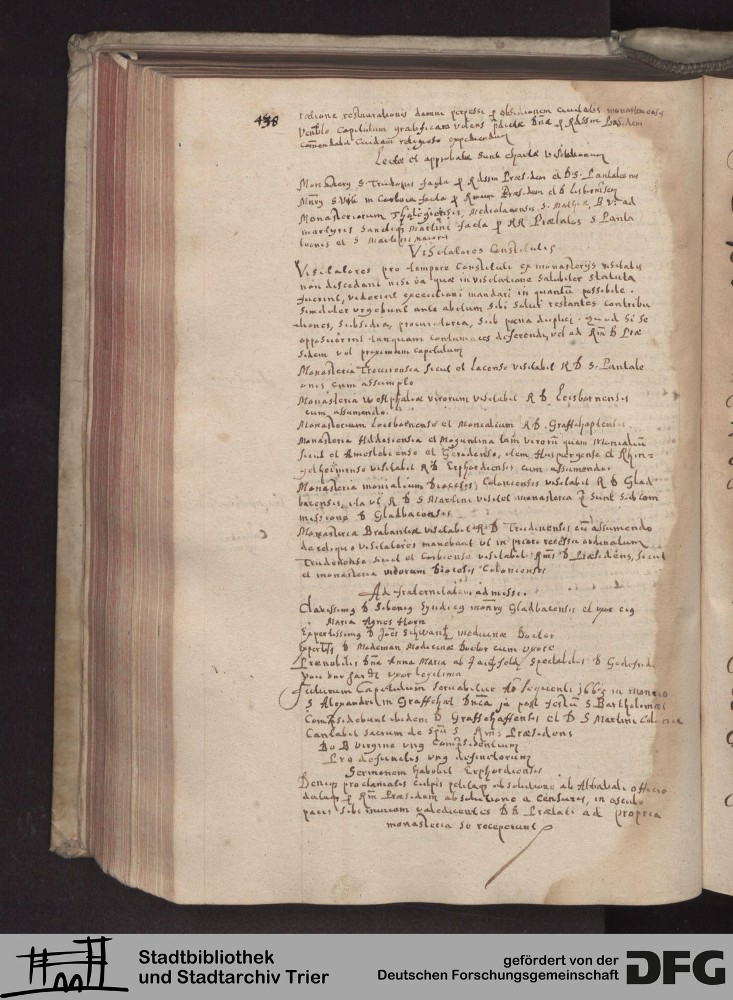 438
ratione restaurationis damni perpessi p obsidionem civitatis monasteriensis
Venble Capitulum gratificari volens pdicta Dna R Rdssm Praesidem
comendabit cuidam religioso expediendum
Lectae et approbatae sunt chartae visitationum
Monstery S. Trudonis facta p Rdssm Praesidem et D. S. Pantaleonis
Mnry S Viti in Corbeia facta p Rmum Praesidem et D Lisbornsem
Monasteriorum Tholegiensis, Mediolacensis S. Mathiae, B. V. ad
martyres Sanctique Martini facta p RR Praelatos S Panta
leonis et S Martini maioris
Visitatores Constituti
Visitatores pro tempore Constituti ex monasterijs visitatis
non discedant nisi ea quae in visitatione salubriter statuta
fuerint, viderint executioni mandari in quantum possibile.
Similiter urgebunt ante abitum sibi solui restantes contribu
tiones, subsidia, procuratoria, sub poena dupli. Quod si se
opposuerint tanquam contumaces deferendi vel ad Rm D Prae
sidem vel proximum capitulum
Monasteria Trevirensia sicut et Lacense visitabit R D S. Pantale
onis cum assumpto
Monasteria Westphaliae virorum visitabit R D Leisbornensis
cum assumendo.
Monasterium Loesbornense et Monialium R D. Graffschaptensis.
Monasteria Hildesiensia et Moguntina tam virorum quam Monialium
sicut et Amoslobiense et Gerodense, item Huisburgense et Rhin
gelheimense visitabit R D Erphordiensis cum assumendo.
Monasteria monialium Dioecesis Coloniensis visitabit R D Glad
bacensis, ita ut R D S Martini visitet monasteria q sunt sub com
missione D Gladbacensis
Monasteria Brabantiae visitabit R D Trudonensis cum assumendo
de reliquo visitatores manebunt ut in priori recessu ordinatum
Trudonense sicut et Corbiense visitabit Rms D Praesidens, sicut
et monasteria virorum Dioecesis Coloniensis
Ad fraternitatem admissi.
Clarissimus D Sibenius Syndicus monry Gladbacensis et uxor eius
Maria Agnes Horn
Expertissimus D Joes Schwartz medicinae Doctor
Expertiss D Mademan Medicinae Doctor cum uxore
Praenobilis Dna Anna Maria ab Spectabilis D Godefridi
von der hardt uxor legitima
Futurum Capitulum servabitur Ao sequenti 1662 in monrio
S Alexandri in Graffschaf Dnica ja post festum S Bartholomaei
Compsidebunt ibidem D Graffschaffensis et D S Martini Coloniae
Cantabit sacrum de Spu S Rms Praesidens
De B Virgine unus Compsidentium
Pro defunctis unus definitorum
Sermonem habebit Erphordiensis
Deniq proclamatis culpis petitaq absolutione ab Abbatiali officio
dataq p Rm Praesidem absolutione a Censuris, in osculo
pacis sibi invicem valedicentes DD Praelati ad propria
monasteria se receperunt
Stadtbibliothek
und Stadtarchiv Trier
gefördert von der
Deutschen Forschungsgemeinschaft
DFG